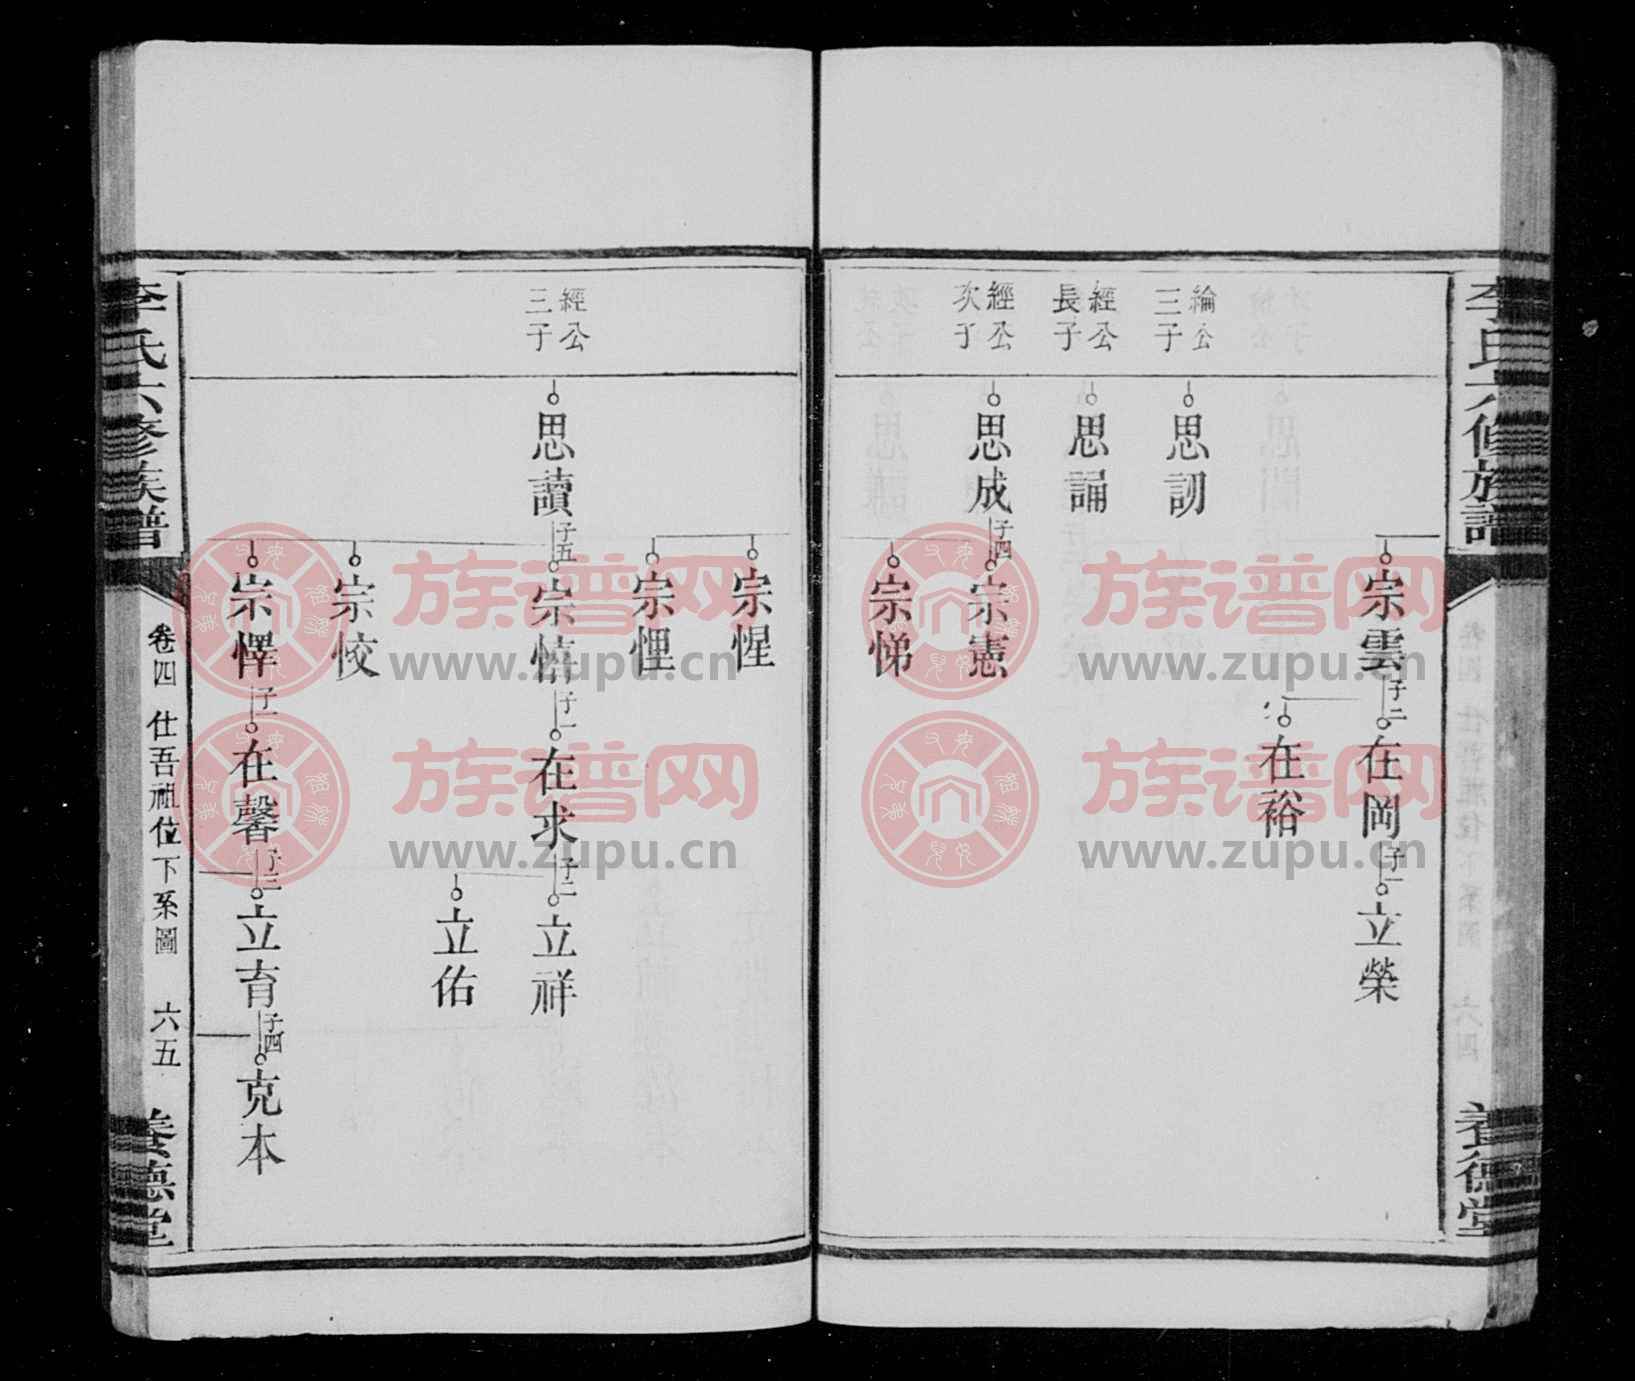 李氏六修族譜
養德堂
宗雲
子二
在岡
子一
立榮
在裕
綸公
三子
思訒
經公
長子
思誦
經公
次子
思成
子四
宗憲
宗悌
宗惺
宗悝
經公
三子
思讀
子五
宗慎
子一
在求
子二
立祥
立佑
宗恔
宗懌
子一
在馨
子二
立育
子四
克本
李氏六修族譜
卷四 仕吾祖位下系圖 六五
養德堂
族谱网
www.zupu.cn
族谱网
www.zupu.cn
族谱网
www.zupu.cn
族谱网
www.zupu.cn